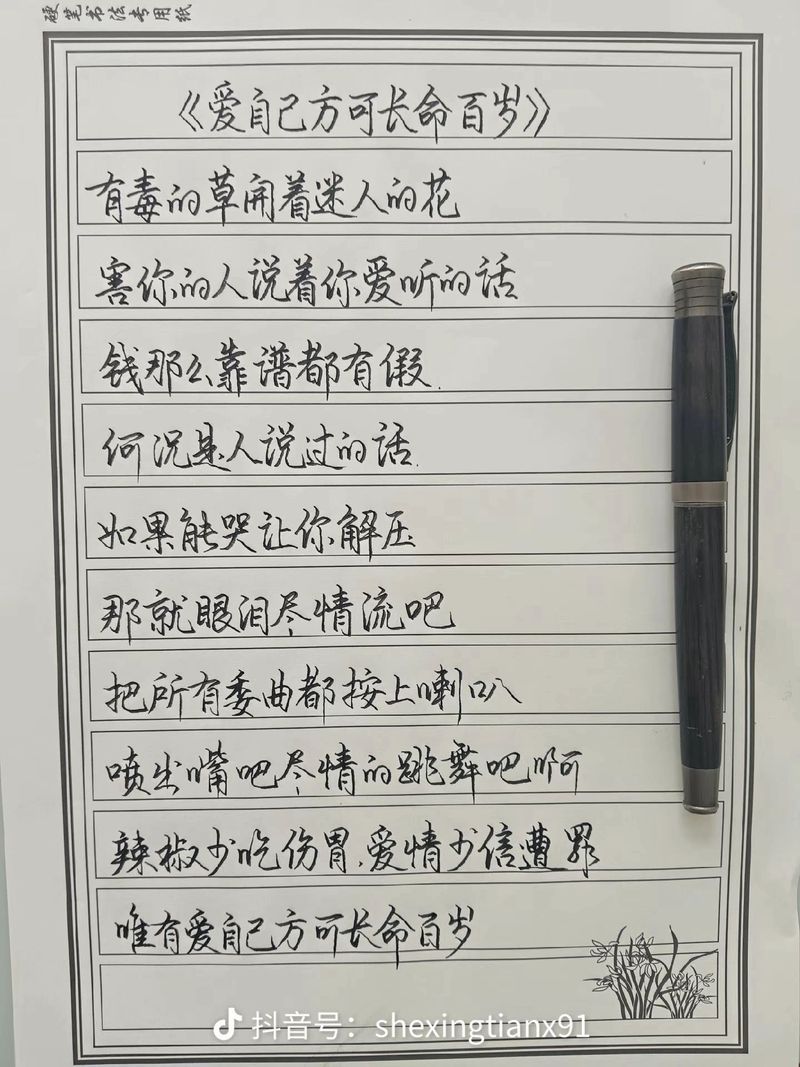 硬笔书法专用纸
《爱自己方可长命百岁》
有毒的草开着迷人的花
害你的人说着你爱听的话
钱那么靠谱都有假
何况是人说过的话
如果能哭让你解压
那就眼泪尽情流吧
把所有委曲都按上喇叭
喷出嘴吧尽情的跳舞吧啊
辣椒少吃伤胃,爱情少信遭罪
唯有爱自己方可长命百岁
抖音号：shexingtianx91